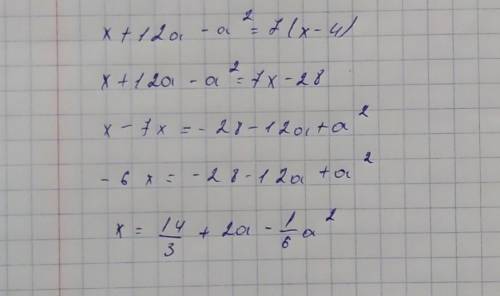 x + 12a - a² = 7(x - 4)
x + 12a - a² = 7x - 28
x - 7x = - 28 - 12a + a²
- 6x = - 28 - 12a + a²
x = 14/3 + 2a - 1/6 a²